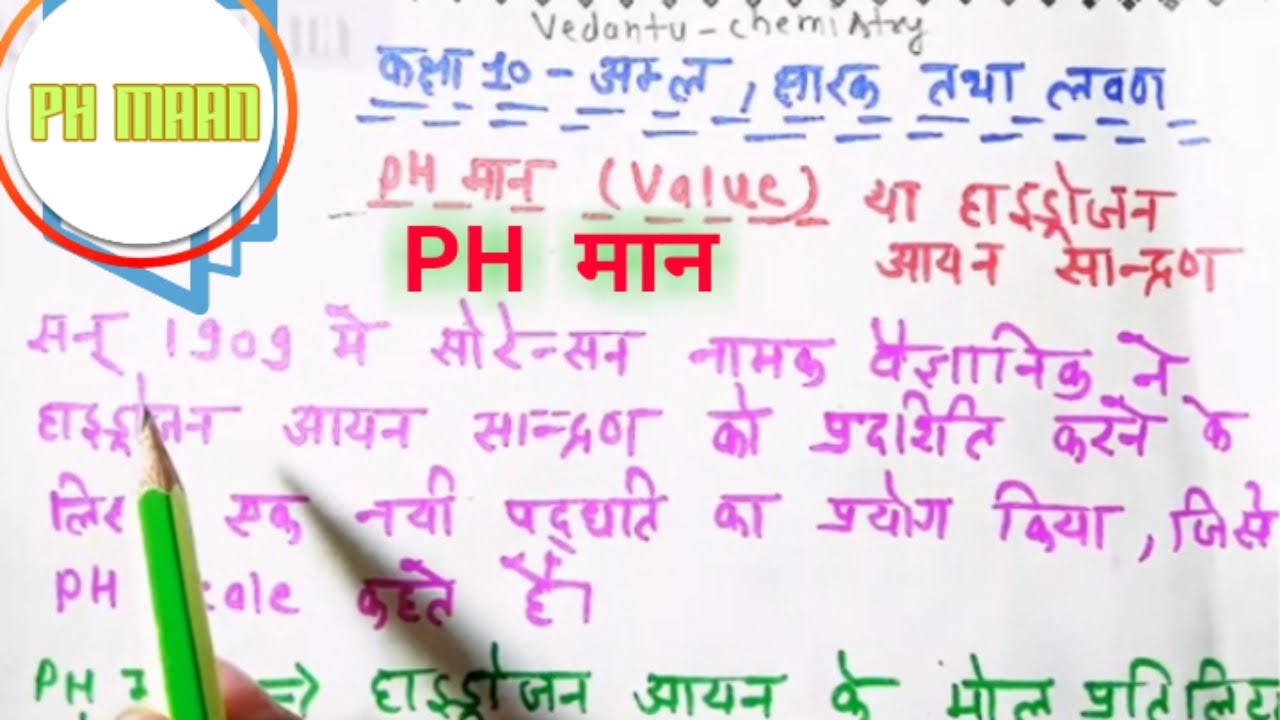 Vedantu - chemistry
PH MAAN
कक्षा 10 - अम्ल, क्षारक तथा लवण
PH मान (Value) या हाइड्रोजन
आयन सान्द्रण
PH मान
सन् 1909 में सोरेन्सन नामक वैज्ञानिक ने
हाइड्रोजन आयन सान्द्रण को प्रदर्शित करने के
लिए एक नयी पद्धति का प्रयोग किया, जिसे
PH scale कहते हैं।
PH ⇒ हाइड्रोजन आयन के मोल प्रति